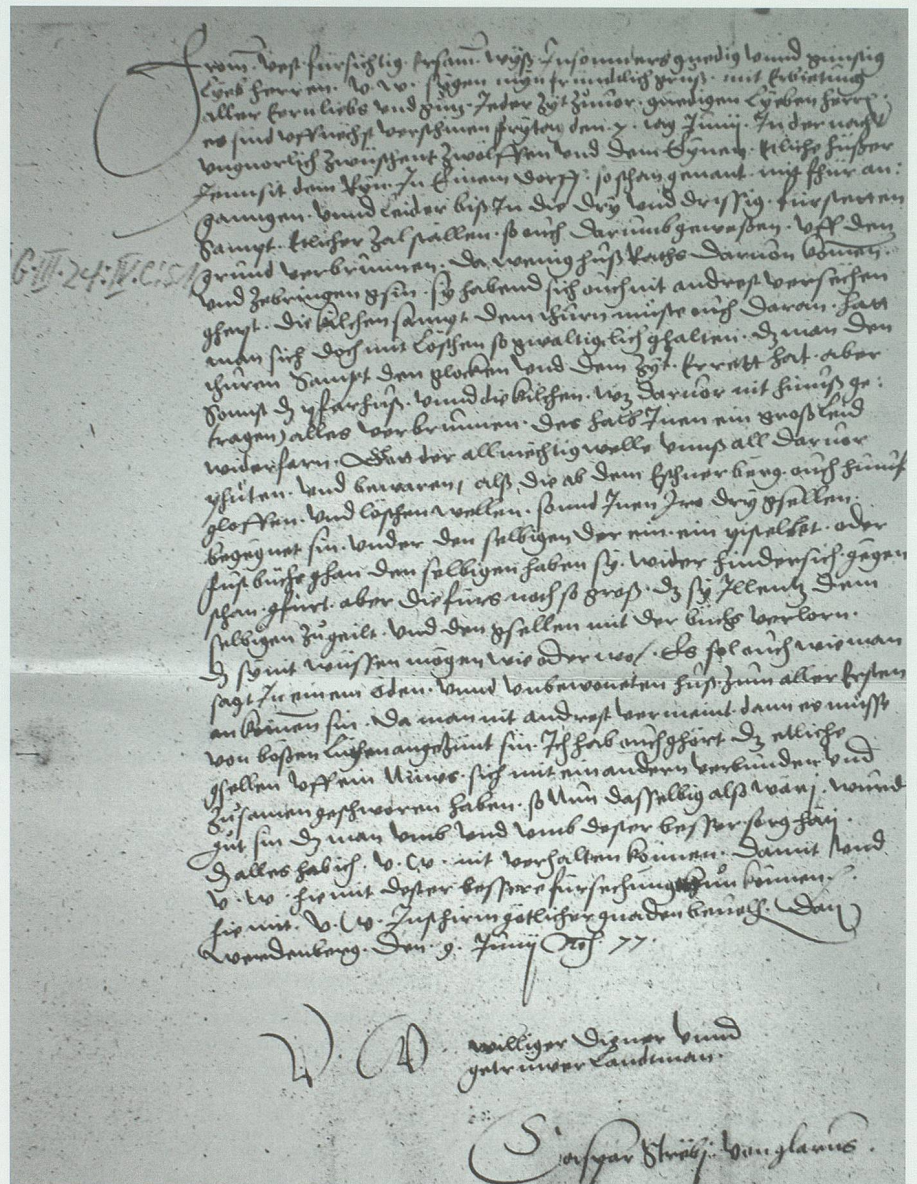 From̄. Vest. fürsichtig. Ersam̄. wyß. Insonders gnedig vnnd günstig
Lyeb herren. V. W. sygen myn fründtlich gruß. mit Erbietung
aller Eern liebs vnd guz. Jeder Zyt Zuuor. gnedigen Lyeben herrn
es sind vff nechst verschinen frytag den 7. tag Junij. In der nacht
vnguorlich Zwüschent Zwölffen vnd dem Eynen. Etliche hüßer
Jennsit dem Ryn. In Einem dorff. so schan genant. mit fhür an:
gangen. vnnd leider biß In die dry vnd drissig. fürstetten
Sampt. Etlicher Zal ställen. so ouch darumb geweßen. vff dem
grund verbrunnen. da wenig huß Raths daruon komen.
vnd Zebringen gsin. sy habend sich ouch nit andrest versechen
ghept. die kilchen sampt dem thurn müste ouch daran. hatt
man sich doch mit Löschen so gwaltigklich ghalten. dz man den
thuren Sampt den glocken vnd dem Zyt. Errett hat. aber
Sonnst dz pfarhuß. vnnd die kilchen. wz daruor nit hinuß ge:
tragen) alles verbrunnen. des halb Inen ein groß leid
widerfarn. Gott der allmechtig welle vnnß all daruor
phüten. vnd bewaren, alß die ab dem Eschnerberg. ouch hinuf
gloffen. vnd löschen wellen. sond Inen Iro dry gsellen.
begegnet sin. vnder den selbigen der ein. ein
fust büchs ghan den selbigen haben sy. wider hindersich gegen
schan. gfürt. aber die fürs noch so groß. dz sy Illentz dem
selbigen Zugeilt. vnd den gsellen mit der büchs verlorn.
dz sy nit wüssen mögen wie oder wo. Es sol ouch wie man
sagt In einem öden. vnnd vnbewoneten huß. Zum aller Ersten
an komen sin. da man nit andrest vermeint. dann es müsse
von boßen Lüthen angezünt sin. Ich hab ouch ghört dz etliche
gsellen vff ein Nüws. sich mit ein andern verbunden vnd
Zusamen geschworen haben. so Nun dasselbig alß wäri. wurd
gut sin dz man vmb vnd vmb dester besser sorg häti.
dz alles hab ich. V. W. nit verhalten können. Damit vnd
V. W. hiemit dester bessere fürsechung thun können.
hie mit. V. W. In schirm götlicher gnaden beuolh. Dan
Werdenberg. Den. 9. Junij 77.
V. W. williger Diener vnnd
getruwer Landtman.
Caspar Strübj. von glarus.
G. III. 24: IV.